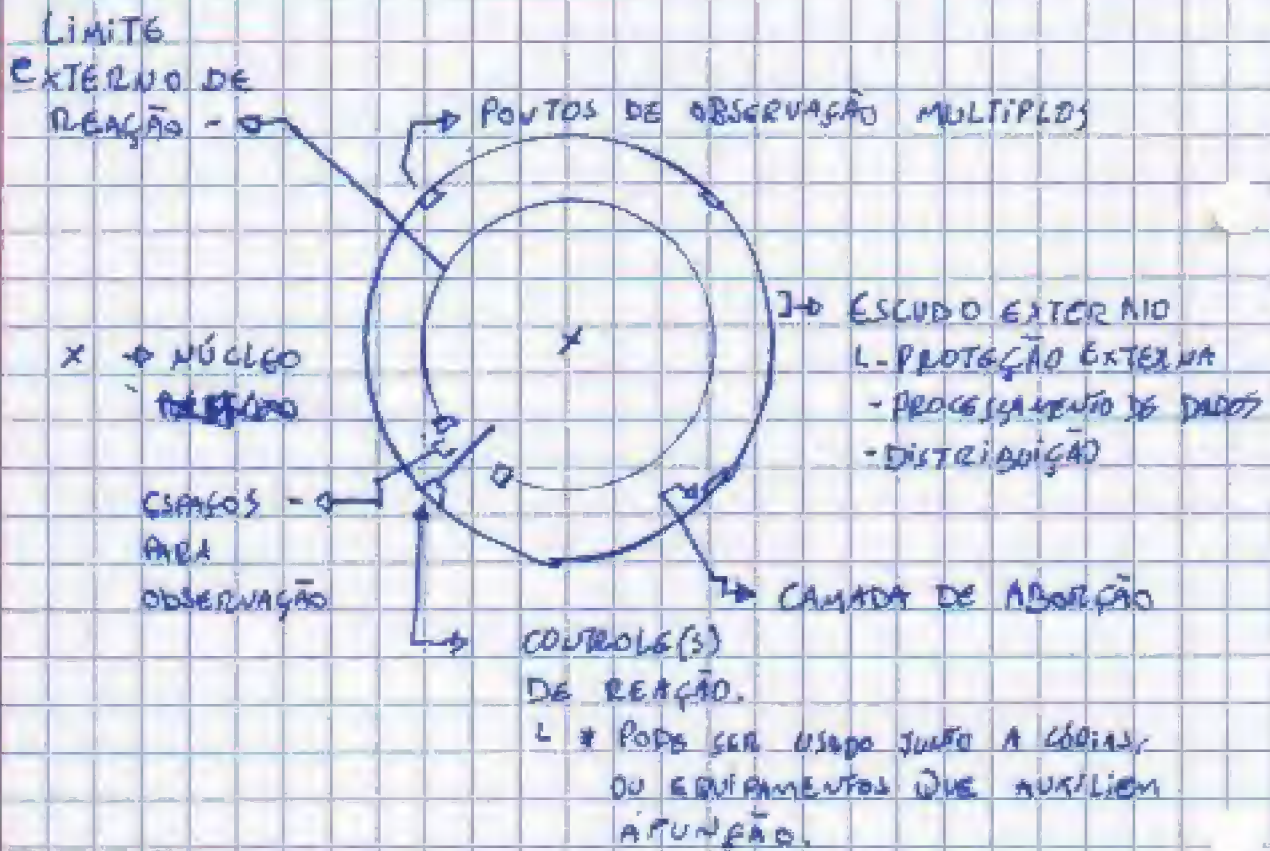 LIMITE
EXTERNO DE
REAÇÃO -
PONTOS DE OBSERVAÇÃO MULTIPLOS
ESCUDO EXTERNO
L - PROTEÇÃO EXTERNA
- PROCESSAMENTO DE DADOS
- DISTRIBUIÇÃO
X → NÚCLEO
ESPAÇOS -
PARA
OBSERVAÇÃO
CAMADA DE ABORÇÃO
CONTROLE(S)
DE REAÇÃO.
L * PODE SER USADO JUNTO A CÓPIAS,
OU EQUIPAMENTOS QUE AUXILIEM
A FUNÇÃO.